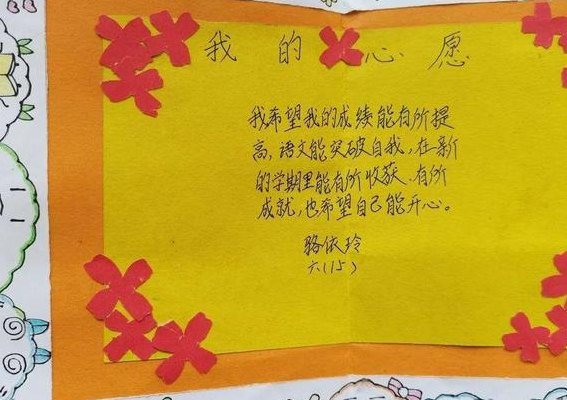 我的心愿
我希望我的成绩能有所提
高，语文能突破自我，在新
的学期里能有所收获、有所
成就，也希望自己能开心。
骆依玲
六(15)